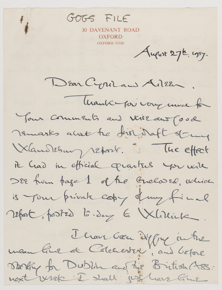 GOGS FILE
30 DAVENANT ROAD
OXFORD
August 27th, 1957.
Dear Cyril and Aileen
Thank you very much for
your comments and nice and good
remarks about the first draft of my
Wandlebury report. The effect
it had in official quarters you will
see from page 1 of the enclosed, which
is your private copy of my final
report, posted to-day to Willink.
I have been digging on the
main line at Colchester, and before
for Dublin and the British Ass.
next week I shall just have time